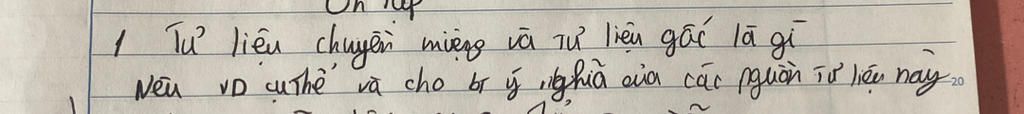 Ôn tập
1 Tư liệu chuyền miệng và Tư liệu gốc là gì
Nêu VD cụ thể và cho bt ý nghĩa của các nguồn Tư liệu này
20